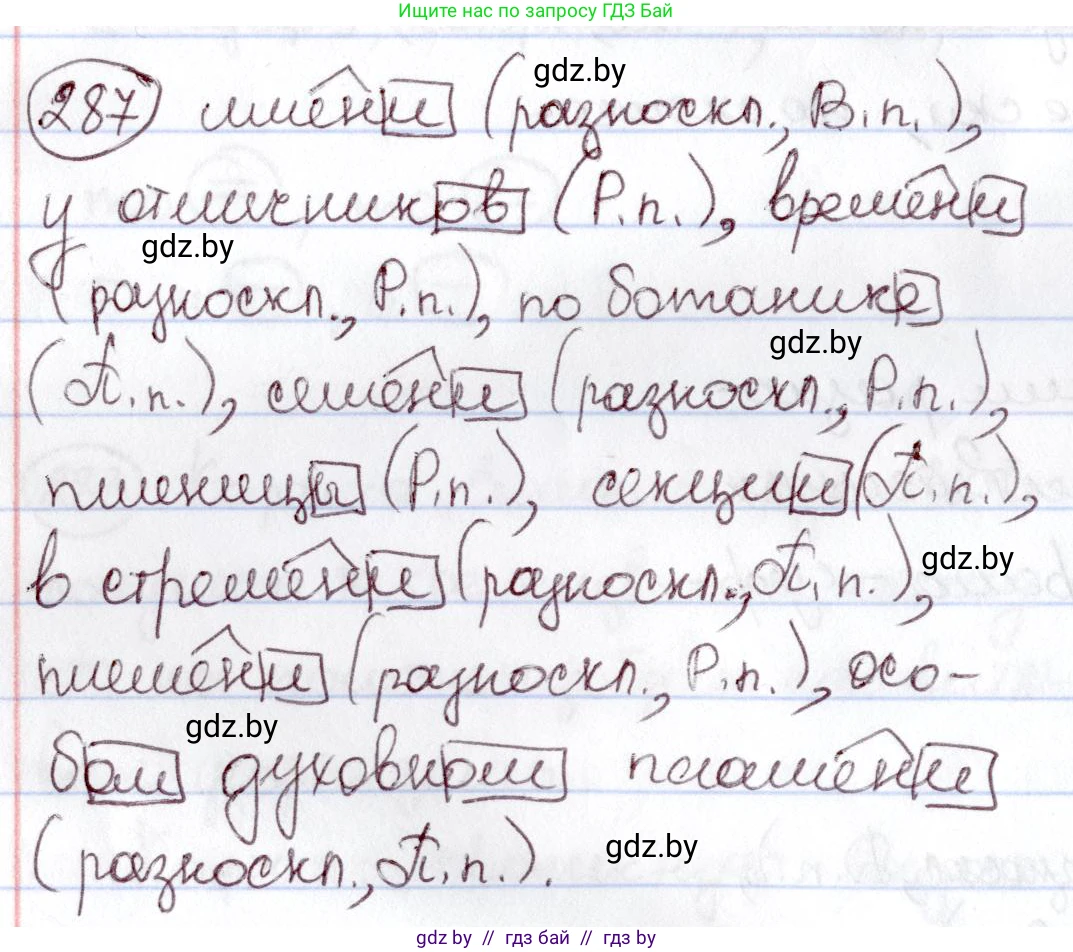 Ищите нас по запросу ГДЗ Бай
gdz.by
287 имени (разноскл., В.п.),
у отличников (Р.п.), времени
gdz.by
(разноскл., Р.п.), по ботанике
gdz.by
(П.п.), семени (разноскл., Р.п.),
пшеницы (Р.п.), секции (П.п.),
gdz.by
в стремени (разноскл., П.п.),
племени (разноскл., Р.п.), осо-
gdz.by
бом духовном пламени
gdz.by
(разноскл., П.п.).
gdz.by // гдз бай // гдз by